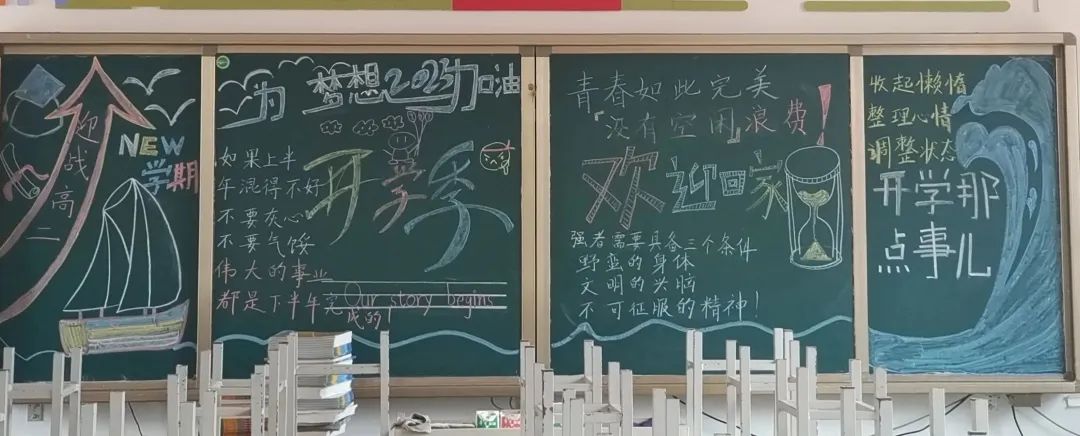 迎战高二
NEW
学期
为梦想2023加油
如果上半
年混得不好
不要灰心
不要气馁
伟大的事业
都是下半年完
成的!
开学季
Our story begins
青春如此完美
『没有空闲』浪费!
欢迎回家
强者需要具备三个条件
野蛮的身体
文明的头脑
不可征服的精神!
收起懒惰
整理心情
调整状态
开学那
点事儿